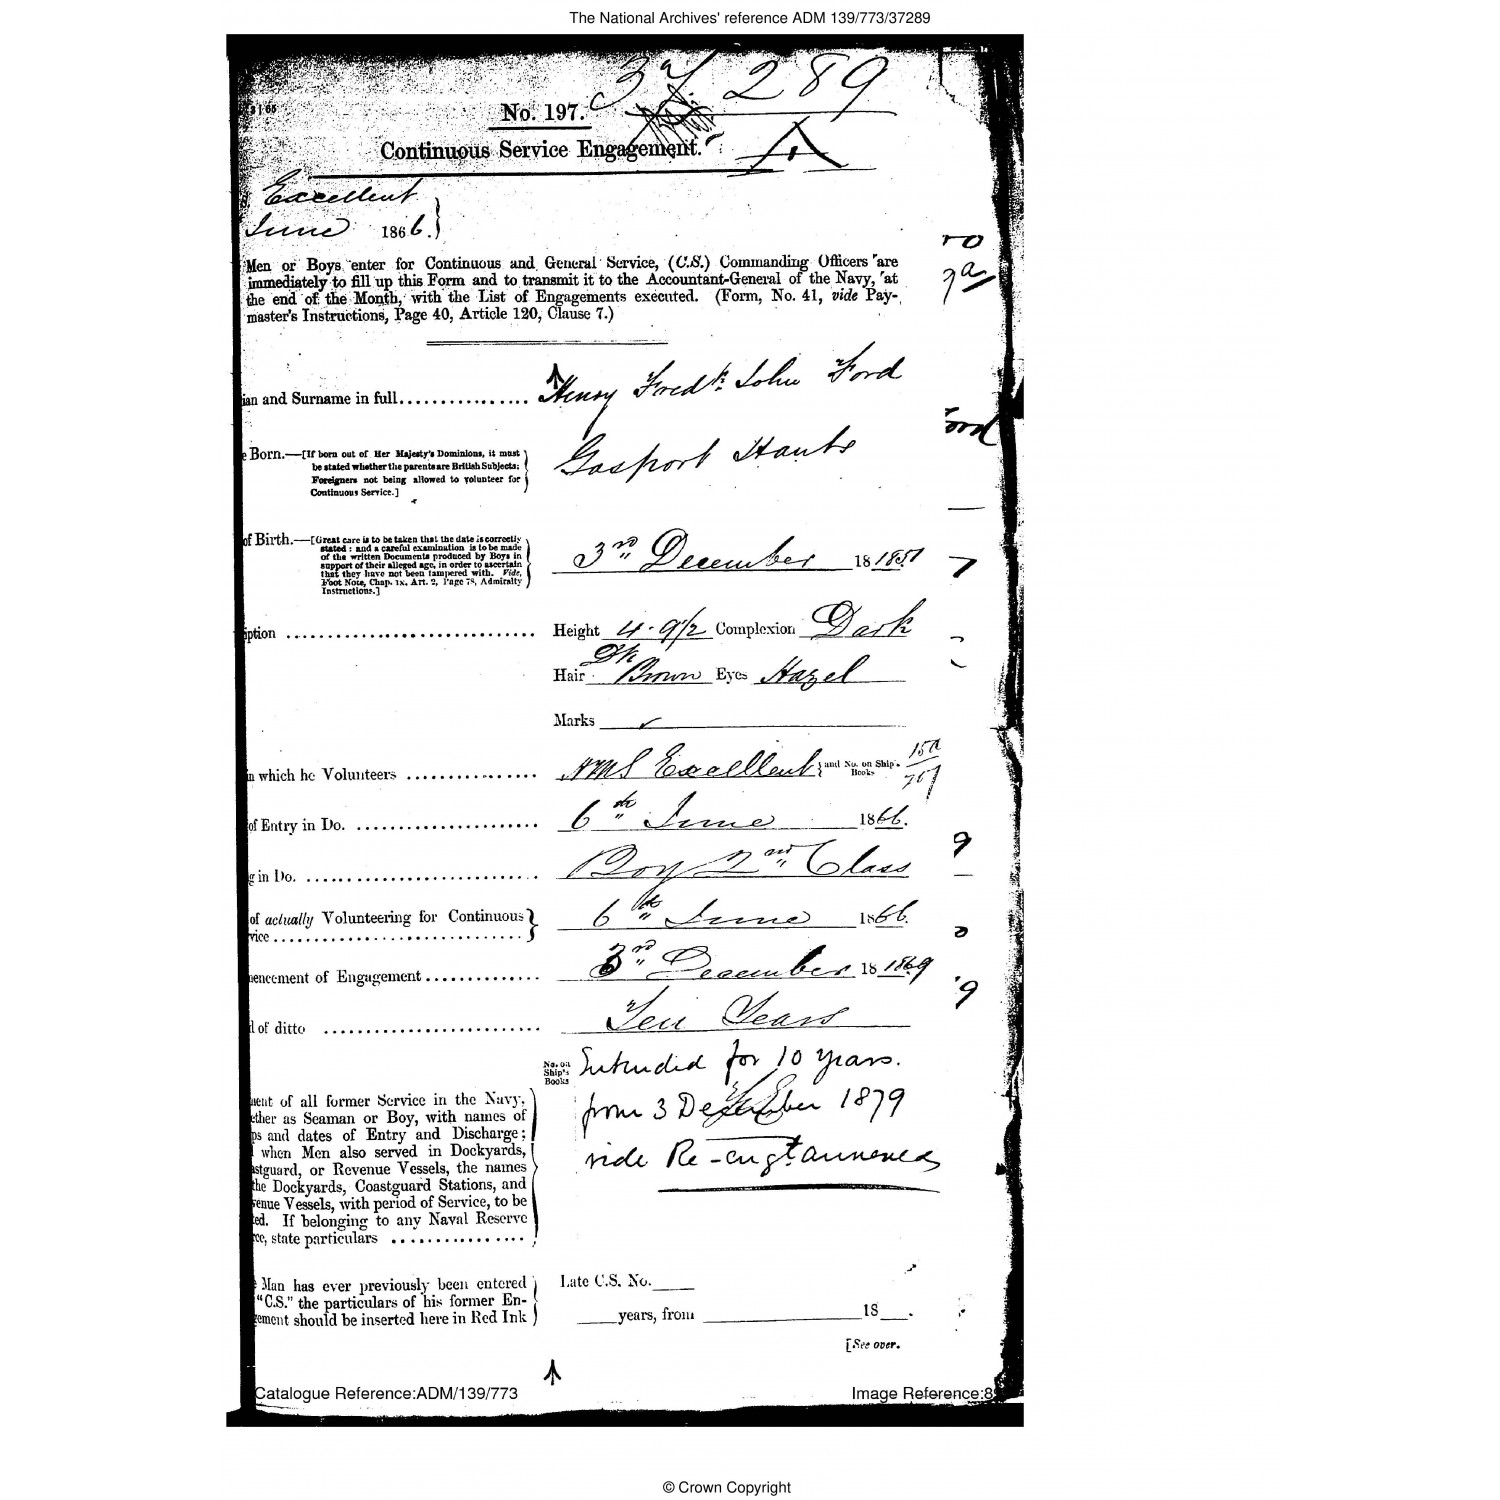 The National Archives' reference ADM 139/773/37289
37,289
No. 197.
Continuous Service Engagement.
A
Excellent
June 1866.
Men or Boys enter for Continuous and General Service, (C.S.) Commanding Officers are
immediately to fill up this Form and to transmit it to the Accountant-General of the Navy, at
the end of the Month, with the List of Engagements executed. (Form, No. 41, vide Pay-
master's Instructions, Page 40, Article 120, Clause 7.)
ian and Surname in full Henry Fredk. John Ford
e Born.—[If born out of Her Majesty's Dominions, it must
be stated whether the parents are British Subjects;
Foreigners not being allowed to volunteer for
Continuous Service.]
Gosport Hants
of Birth.—[Great care is to be taken that the date is correctly
stated: and a careful examination is to be made
of the written Documents produced by Boys in
support of their alleged age, in order to ascertain
that they have not been tampered with. Vide,
Foot Note, Chap. ix. Art. 2, Page 78, Admiralty
Instructions.]
3rd December 18 1851
iption Height 4-9 1/2 Complexion Dark
Hair Dk Brown Eyes Hazel
Marks
in which he Volunteers HMS Excellent and No. on Ship's Books
of Entry in Do. 6th June 1866.
g in Do. Boy 2nd Class
of actually Volunteering for Continuous
vice 6th June 1866.
mencement of Engagement 3rd December 18 1869
d of ditto Ten Years
No. on
Ship's
Books
Intended for 10 years.
from 3 December 1879
vide Re-engt annexed
ment of all former Service in the Navy,
ether as Seaman or Boy, with names of
ps and dates of Entry and Discharge;
when Men also served in Dockyards,
astguard, or Revenue Vessels, the names
the Dockyards, Coastguard Stations, and
venue Vessels, with period of Service, to be
ed. If belonging to any Naval Reserve
rce, state particulars
Man has ever previously been entered
"C.S." the particulars of his former En-
gement should be inserted here in Red Ink
Late C.S. No.
years, from 18 .
[See over.
Catalogue Reference:ADM/139/773
Image Reference:8
© Crown Copyright